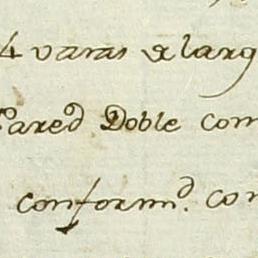 4 varas de larg
Pared Doble com
conformd. con